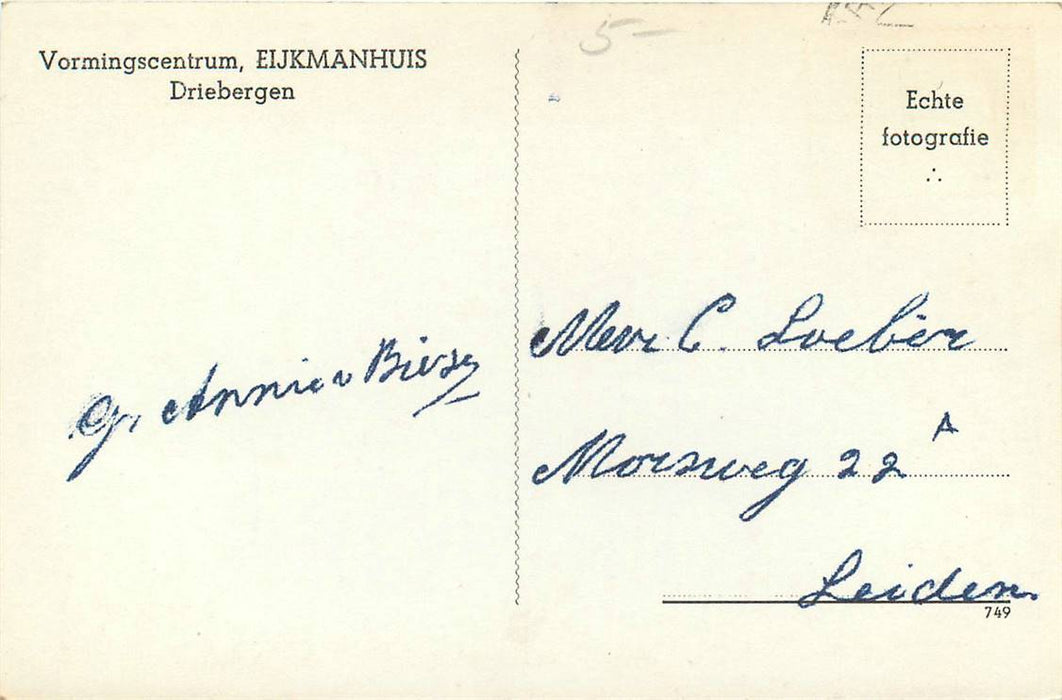 Vormingscentrum, EIJKMANHUIS
Driebergen
Gr. Annie v Biezen
5-
Echte
fotografie
Mevr C. Loebèr
Morsweg 22 A
Leiden.
749